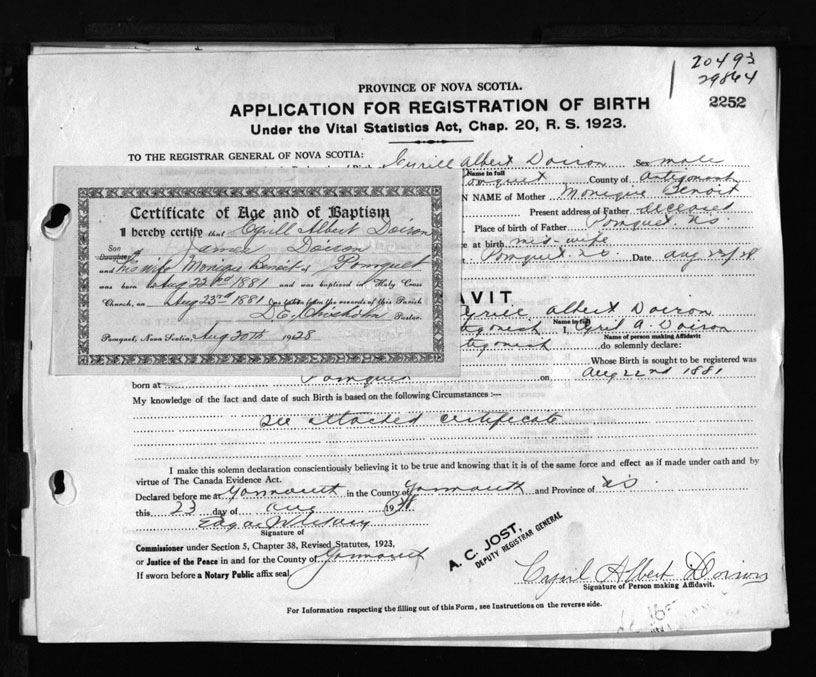 20493
29864
2252
PROVINCE OF NOVA SCOTIA.
APPLICATION FOR REGISTRATION OF BIRTH
Under the Vital Statistics Act, Chap. 20, R. S. 1923.
TO THE REGISTRAR GENERAL OF NOVA SCOTIA:
Cyrill Albert Doiron Sex male
Name in full
Pomquet County of Antigonish
N NAME of Mother Monique Benoit
Present address of Father deceased
Place of birth of Father Pomquet N.S.
e at birth mid-wife
Pomquet N.S. Date Aug 23/28
Certificate of Age and of Baptism
I hereby certify that Cyrill Albert Doiron
Son
Daughter of James Doiron
and his wife Monique Benoit of Pomquet
was born Aug 22nd 1881 and was baptised in Holy Cross
Church, on Aug 23rd 1881 as taken from the records of this Parish
D.E. Chisholm Pastor.
Pomquet, Nova Scotia, Aug 20th 1928
AVIT
Cyrill Albert Doiron
Name in full
Antigonish I, Cyril A. Doiron
Name of person making Affidavit
Antigonish do solemnly declare:
Whose Birth is sought to be registered was
born at Pomquet on Aug 22nd 1881
My knowledge of the fact and date of such Birth is based on the following Circumstances :—
See attached certificate
I make this solemn declaration conscientiously believing it to be true and knowing that it is of the same force and effect as if made under oath and by
virtue of The Canada Evidence Act.
Declared before me at Yarmouth in the County of Yarmouth and Province of N.S.
this 23 day of Aug 1928.
Signature of
Commissioner under Section 5, Chapter 38, Revised Statutes, 1923,
or Justice of the Peace in and for the County of Yarmouth
If sworn before a Notary Public affix seal
A. C. JOST,
DEPUTY REGISTRAR GENERAL
Cyril Albert Doiron
Signature of Person making Affidavit.
For Information respecting the filling out of this Form, see Instructions on the reverse side.